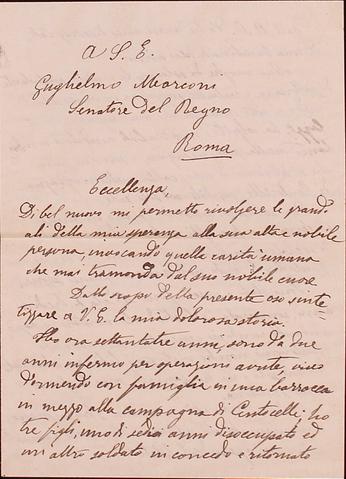 A S. E.
Guglielmo Marconi
Senatore del Regno
Roma
Eccellenza,
Di bel nuovo mi permetto rivolgere le grandi
ali della mia speranza alla sua alta e nobile
persona, invocando quella carità umana
che mai tramonda dal suo nobile cuore
Dallo scopo della presente oso sinte-
tizzare a V. E. la mia dolorosa storia.
Ho ora settantatre anni, sono da due
anni infermo per operazioni avute, vivo
dormendo con famiglia in una barracca
in mezzo alla campagna di Centocelle; ho
tre figli, uno di sedici anni disoccupato ed
un altro soldato in concedo e ritornato